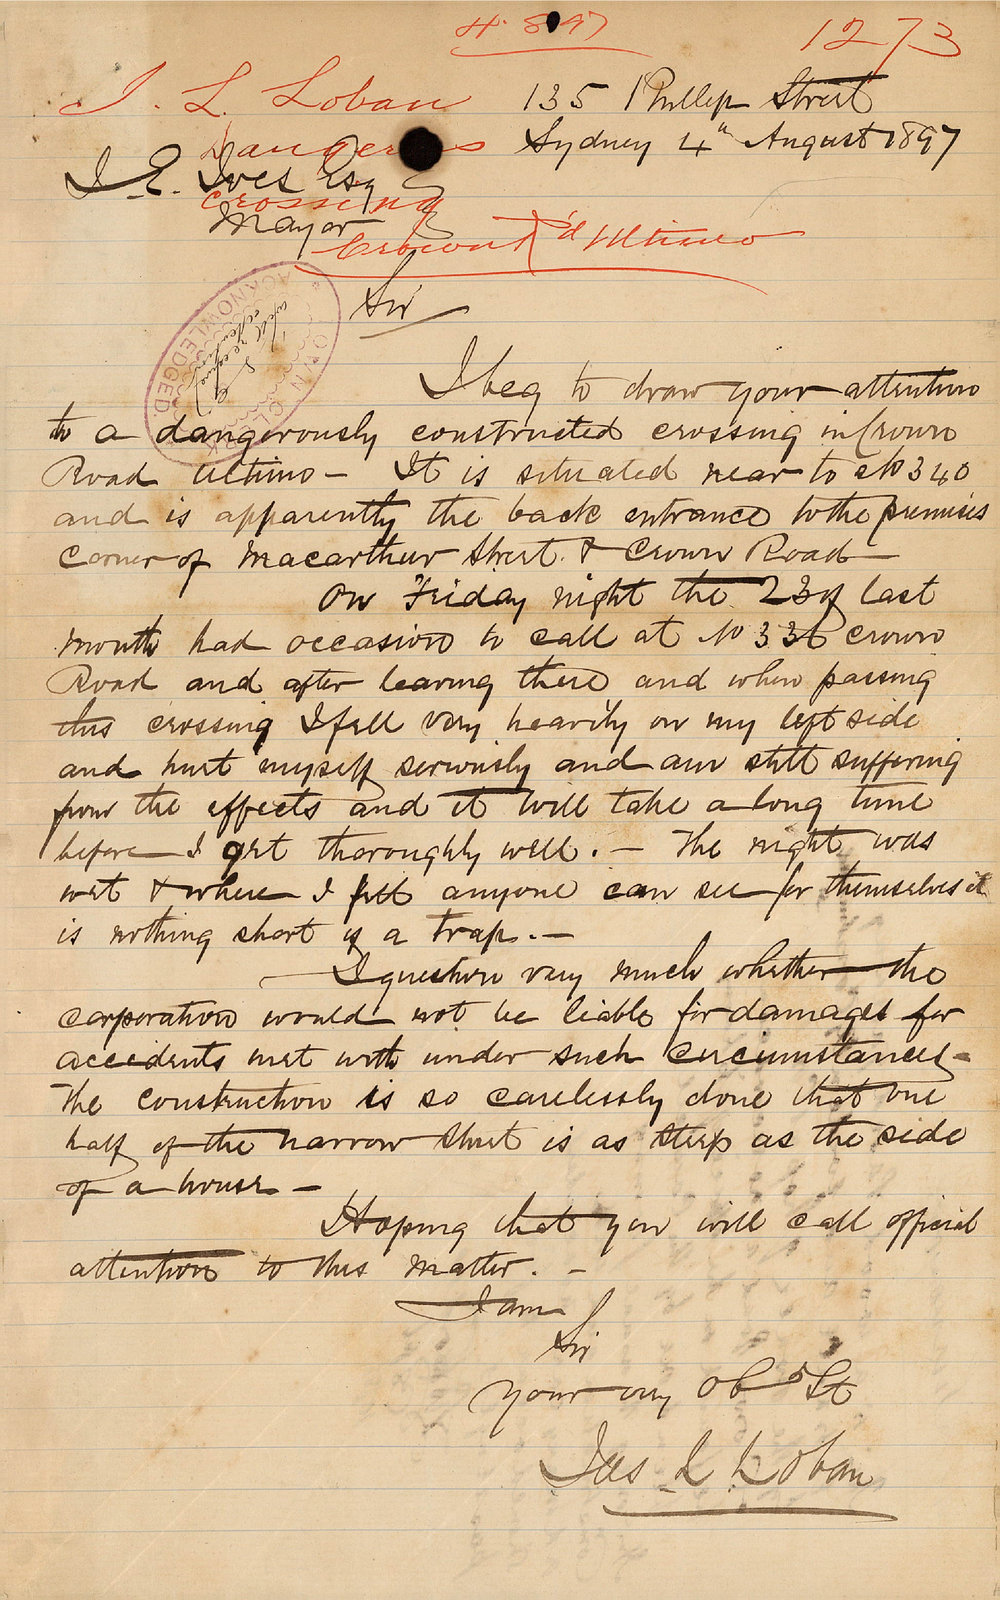 4. 8 97
1273
J. L. Loban
135 Phillip Street
Dangerous
Sydney 4th August 1897
I. E. Ives Esq
crossing
Mayor
Crown Rd Ultimo
Sir
TOWN CLERK
ACKNOWLEDGED.
I beg to draw your attention
to a dangerously constructed crossing in Crown
Road Ultimo – It is situated near to No 340
and is apparently the back entrance to the premises
corner of Macarthur Street & Crown Road –
On Friday night the 23rd last
month had occasion to call at No 336 Crown
Road and after leaving there and when passing
this crossing I fell very heavily on my left side
and hurt myself seriously and am still suffering
from the effects and it will take a long time
before I get thoroughly well. – The night was
wet & where I fell anyone can see for themselves it
is nothing short of a trap. –
I question very much whether the
corporation would not be liable for damages for
accidents met with under such circumstances –
The construction is so carelessly done that one
half of the narrow street is as steep as the side
of a house –
Hoping that you will call official
attention to this matter. –
I am
Sir
Your very Ob St
Jas L Loban